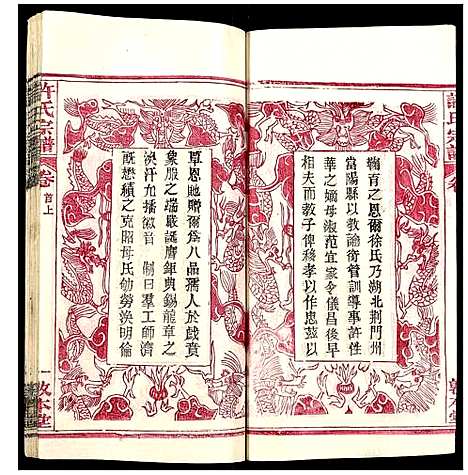 許氏宗譜
鞠育之恩爾徐氏乃湖北荆門州
當陽縣以教諭銜管訓導事許性
華之嫡母淑范宜家令儀昌後早
相夫而教子俾移孝以作忠茲以
覃恩貤贈爾爲八品孺人於戲賁
象服之端嚴誕膺鉅典錫龍章之
渙汗允播徽音 制曰羣工師濟
既懋績之克昭母氏劬勞渙明倫
許氏宗譜
卷
首上
一
敦本堂
敦本堂